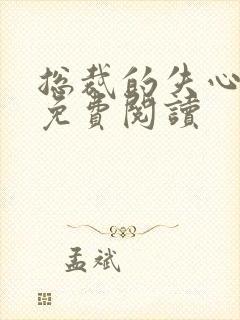 总裁的失心
免費閱讀
孟斌